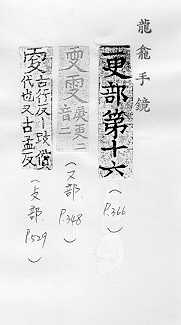 龍龕手鏡
更部第十六
(P.366)
庚更二
音二
(又部 P.348)
古行反改償
代也又古孟反
(部 P.529)